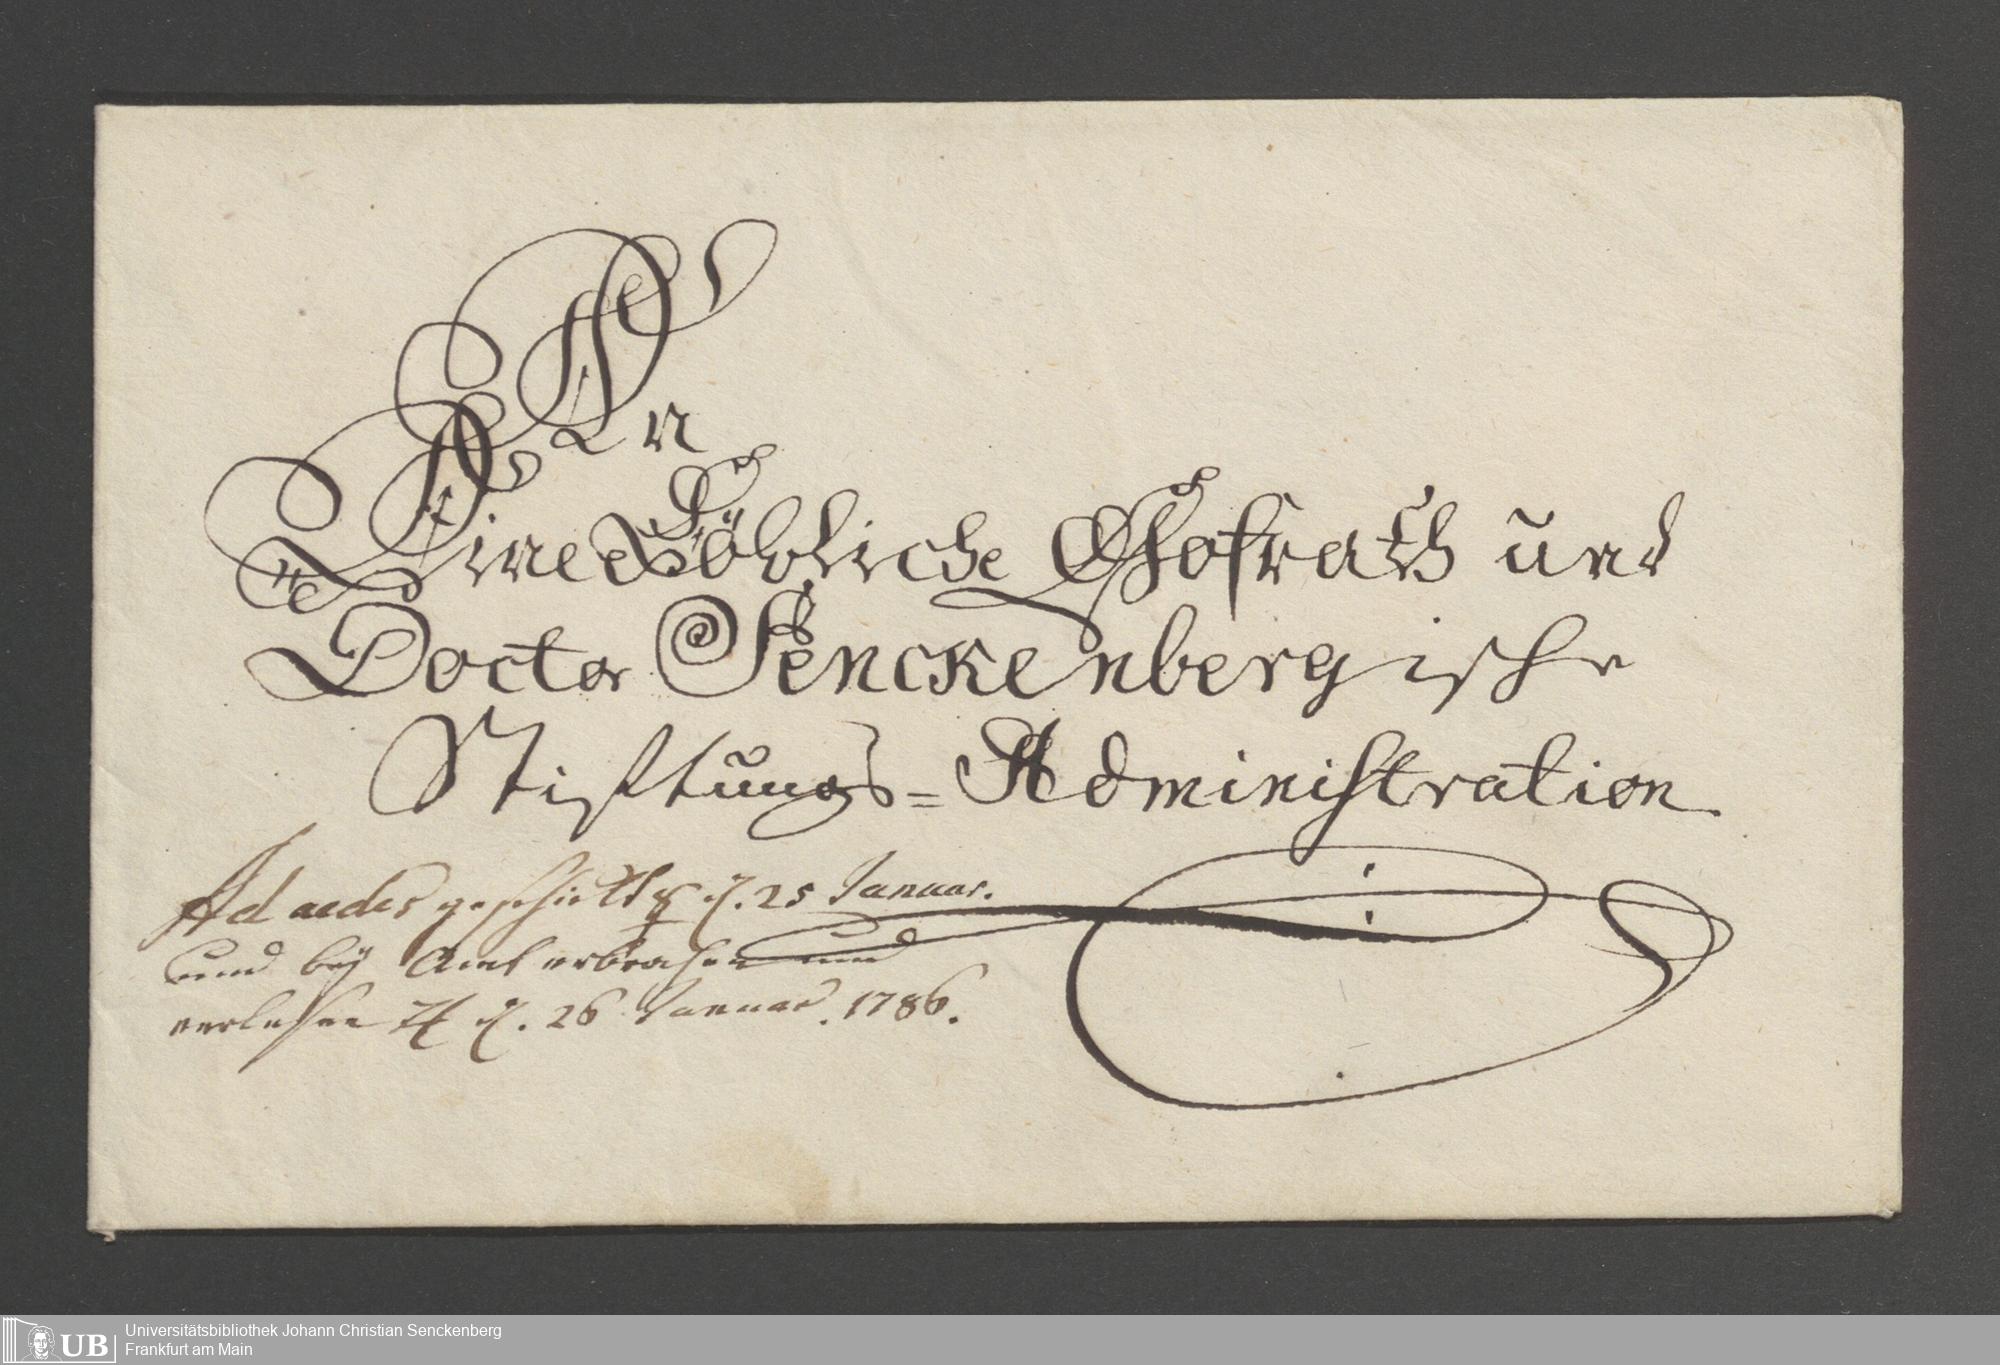 An
Eine Löbliche Hofrath und
Doctor Senckenbergische
Stiftungs=Administration
Ad aedes geschickt d. 25 Januar.
und bey Amt erbrochen und
verlesen d. 26 Januar. 1786.
UB
Universitätsbibliothek Johann Christian Senckenberg
Frankfurt am Main